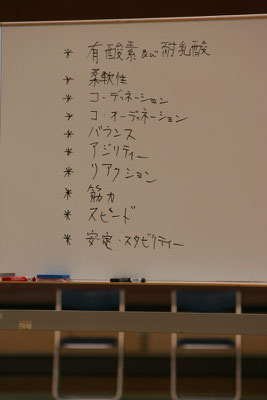 * 有酸素及び耐乳酸
* 柔軟性
* コ・ディネーション
* コ・オーディネーション
* バランス
* アジリティー
* リアクション
* 筋力
* スピード
* 安定・スタビリティー